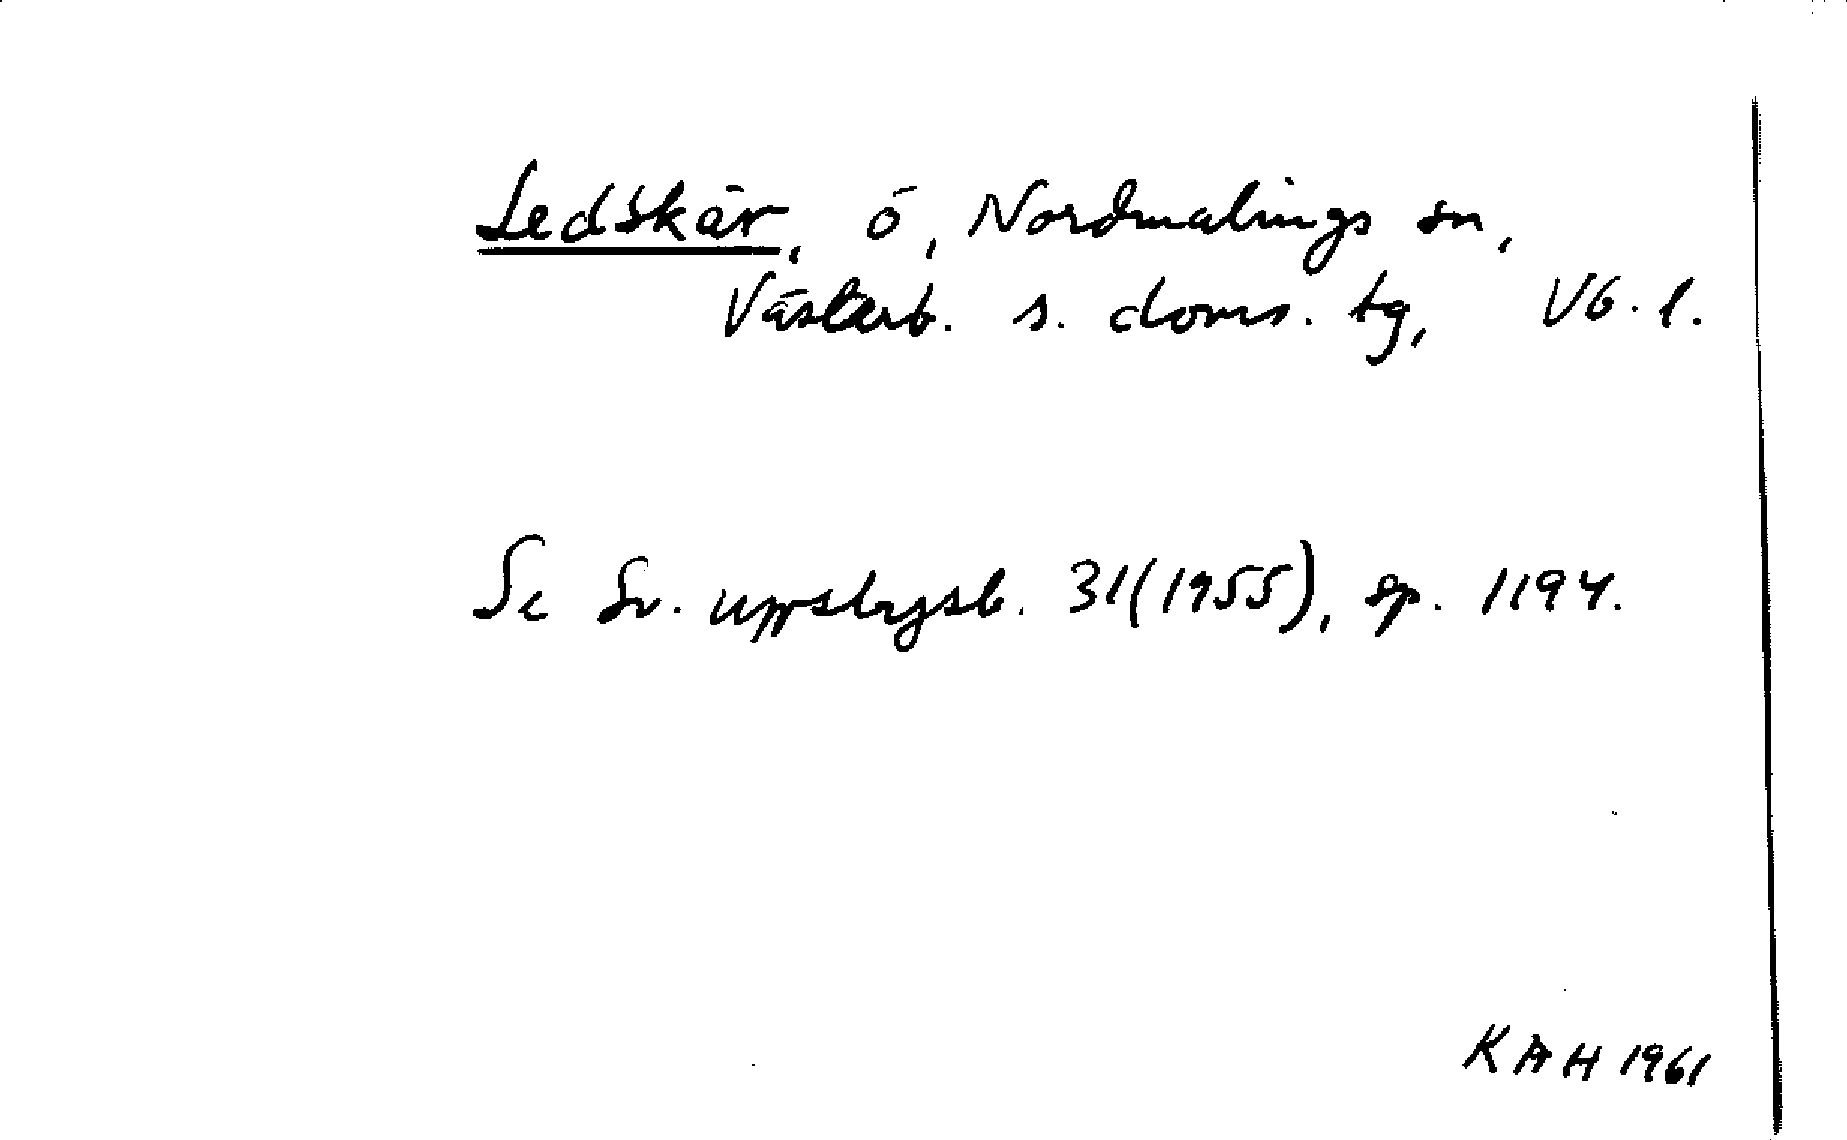 Ledskär, ö, Nordmalings sn,
Västerb. s. doms. tg, Vb. l.
Se Sv. uppslagsb. 31(1955), sp. 1194.
KAH 1961